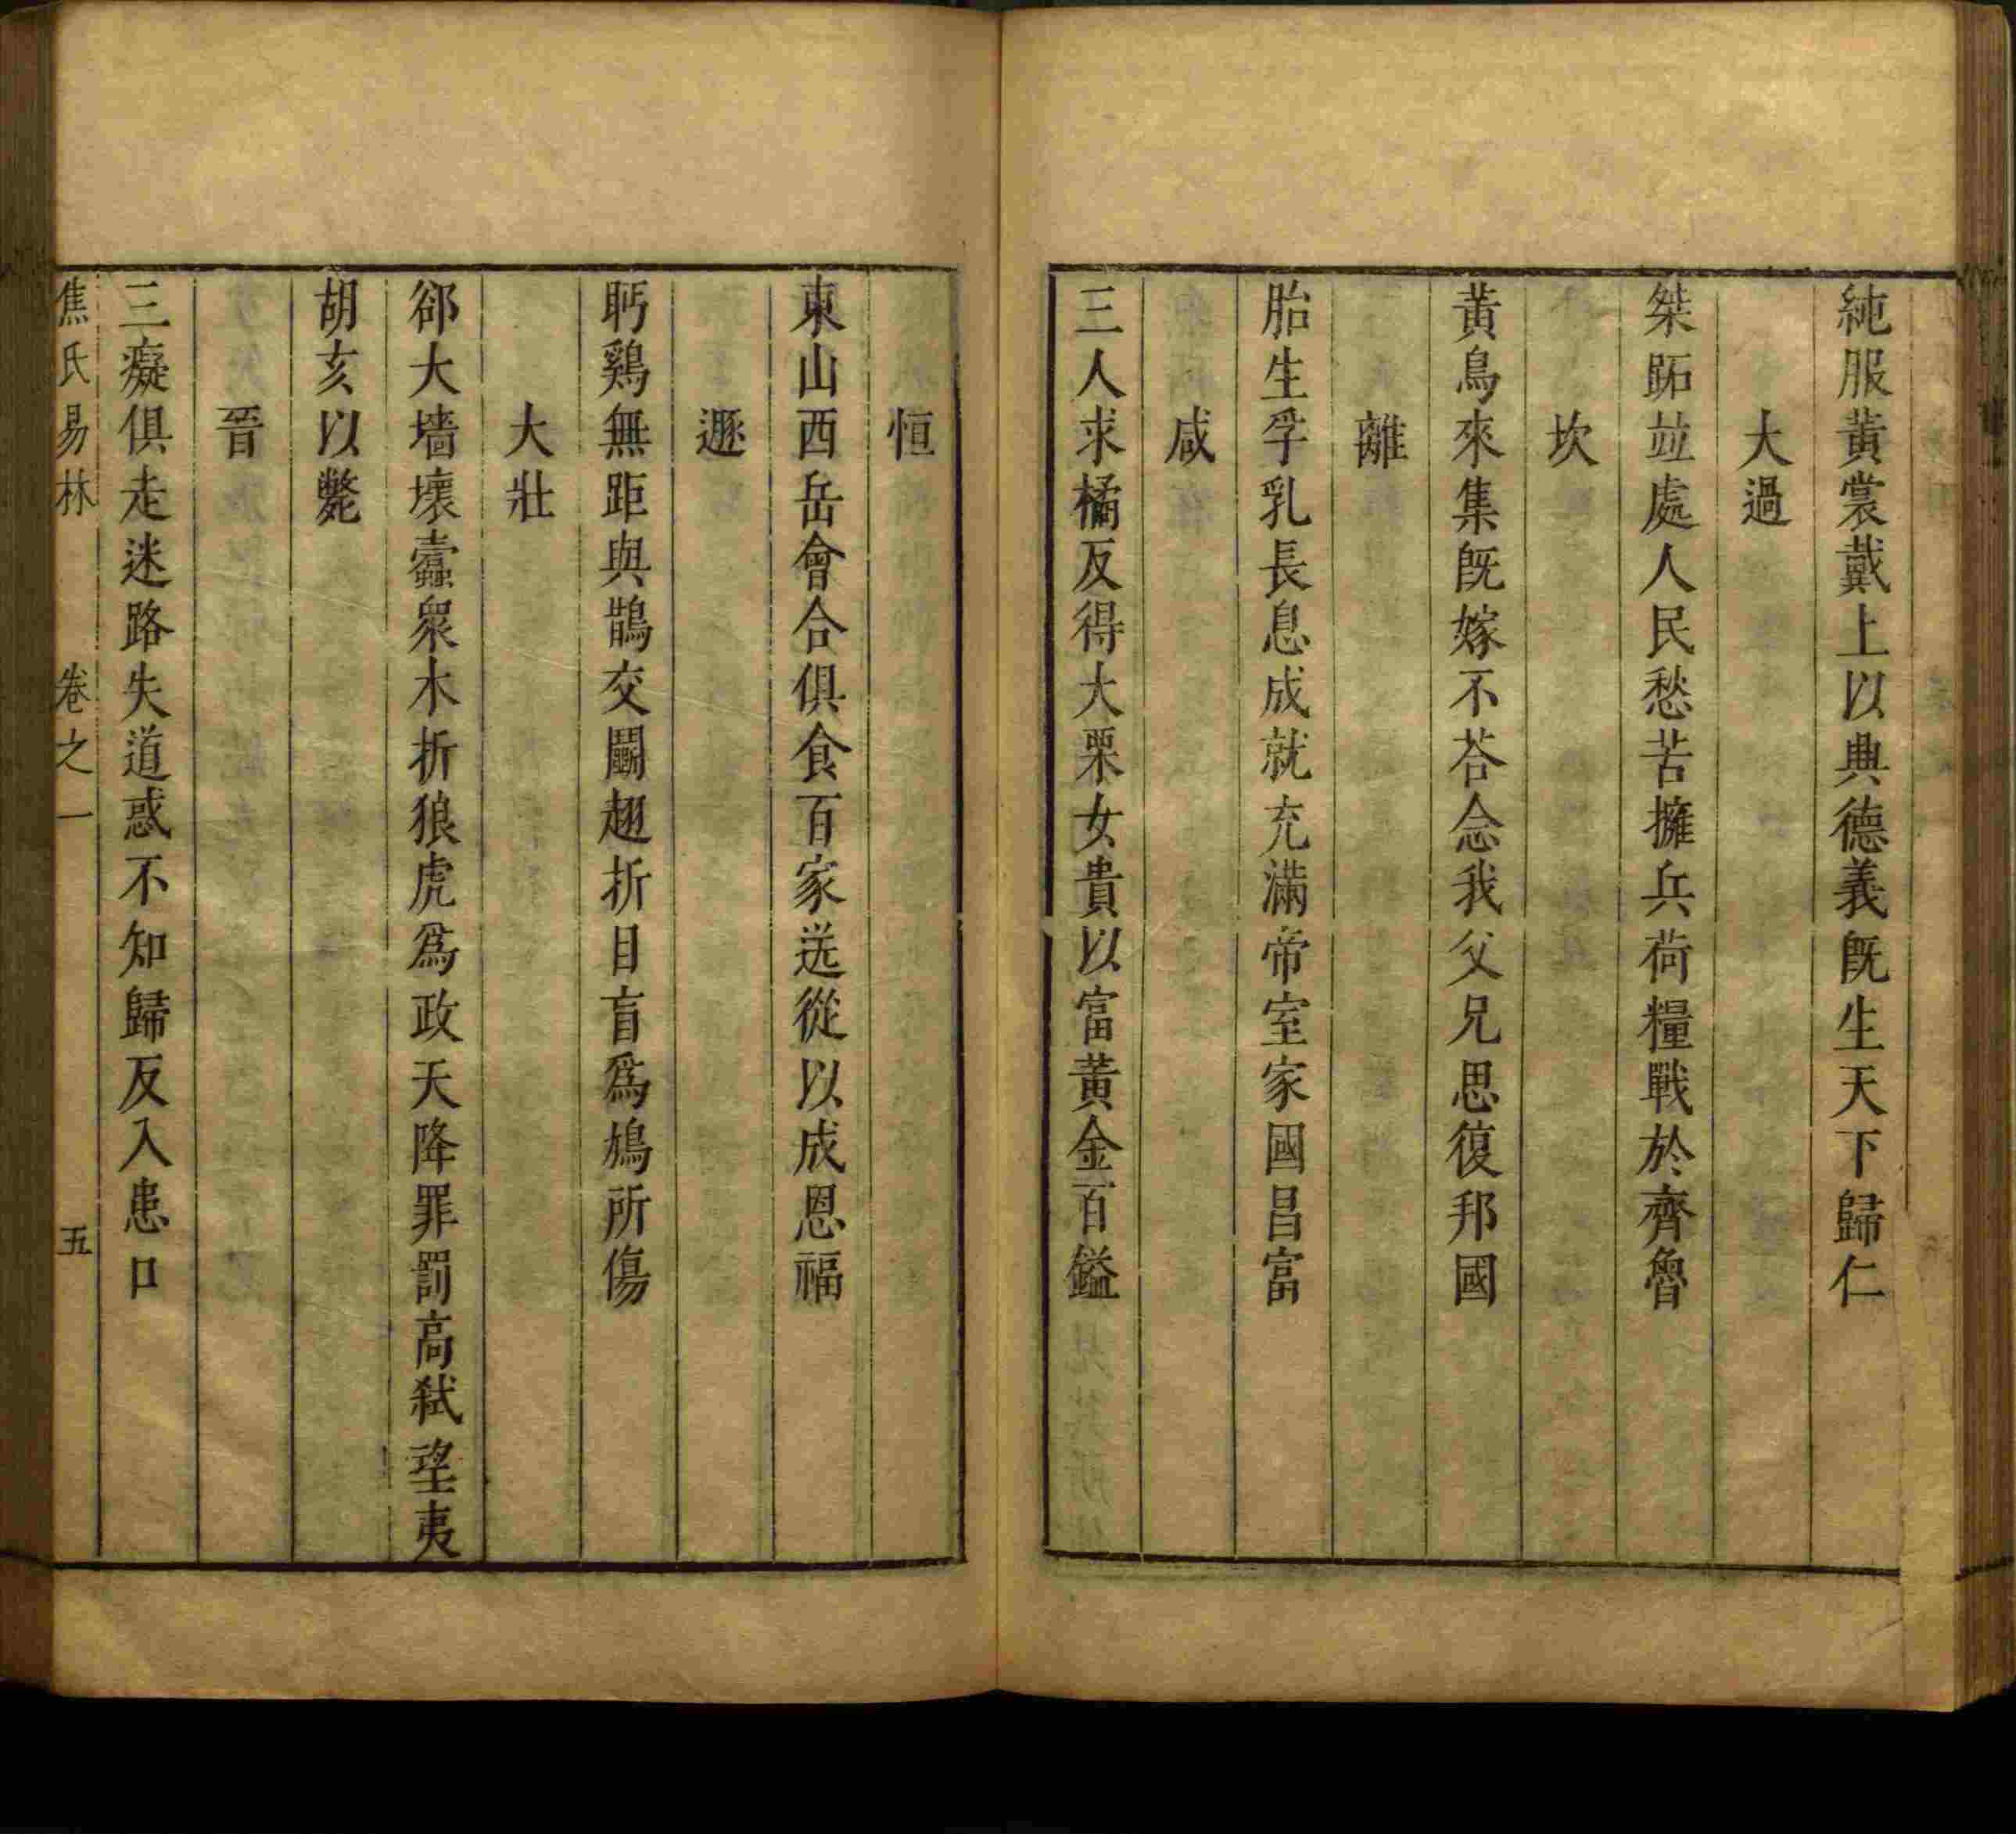 純服黃裳戴上以典德義旣生天下歸仁
大過
桀跖竝處人民愁苦擁兵荷糧戰於齊魯
坎
黃鳥來集旣嫁不荅念我父兄思復邦國
離
胎生孚乳長息成就充滿帝室家國昌富
咸
三人求橘反得大栗女貴以富黃金百鎰
恒
東山西岳會合俱食百家送從以成恩福
遯
眄鷄無距與鵲交鬭翅折目盲爲鳩所傷
大壯
郤大墻壞蠹衆木折狼虎爲政天降罪罰高弑望夷
胡亥以斃
晉
三癡俱走迷路失道惑不知歸反入患口
焦氏易林 卷之一 五